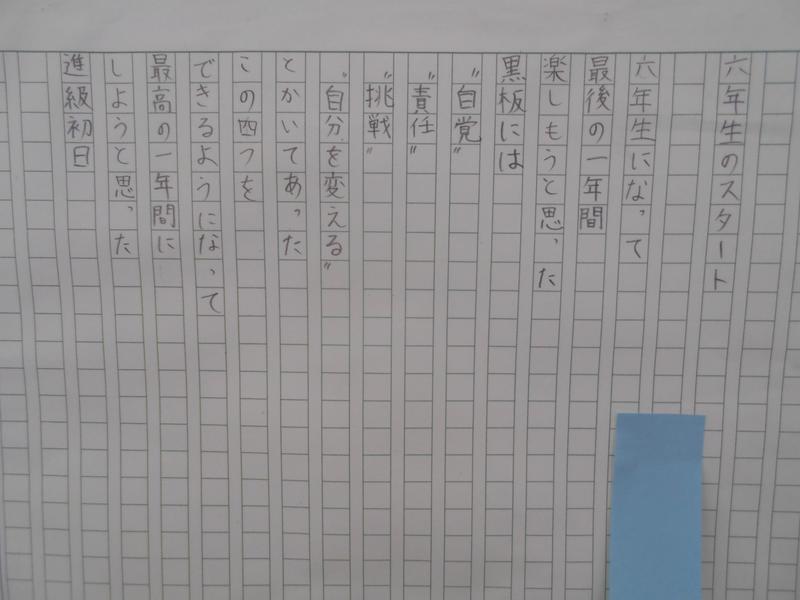 六年生のスタート
六年生になって
最後の一年間
楽しもうと思った
黒板には
"自覚"
"責任"
"挑戦"
"自分を変える"
とかいてあった
この四つを
できるようになって
最高の一年間に
しようと思った
進級初日